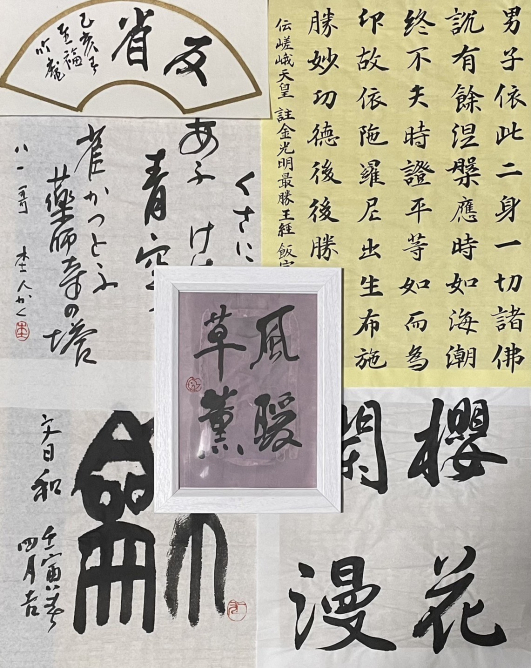 反省
男子依此二身一切諸佛
説有餘涅槃應時如海潮
終不失時證平等如而為
印故依陁羅尼出生布施
勝妙功德後後勝
伝嵯峨天皇 註金光明最勝王経
くさに
あふ
青空
雀かつとふ
薬師寺の塔
八一哥
風暖
草薫
櫻花
漫
日和
壬寅
四月吉